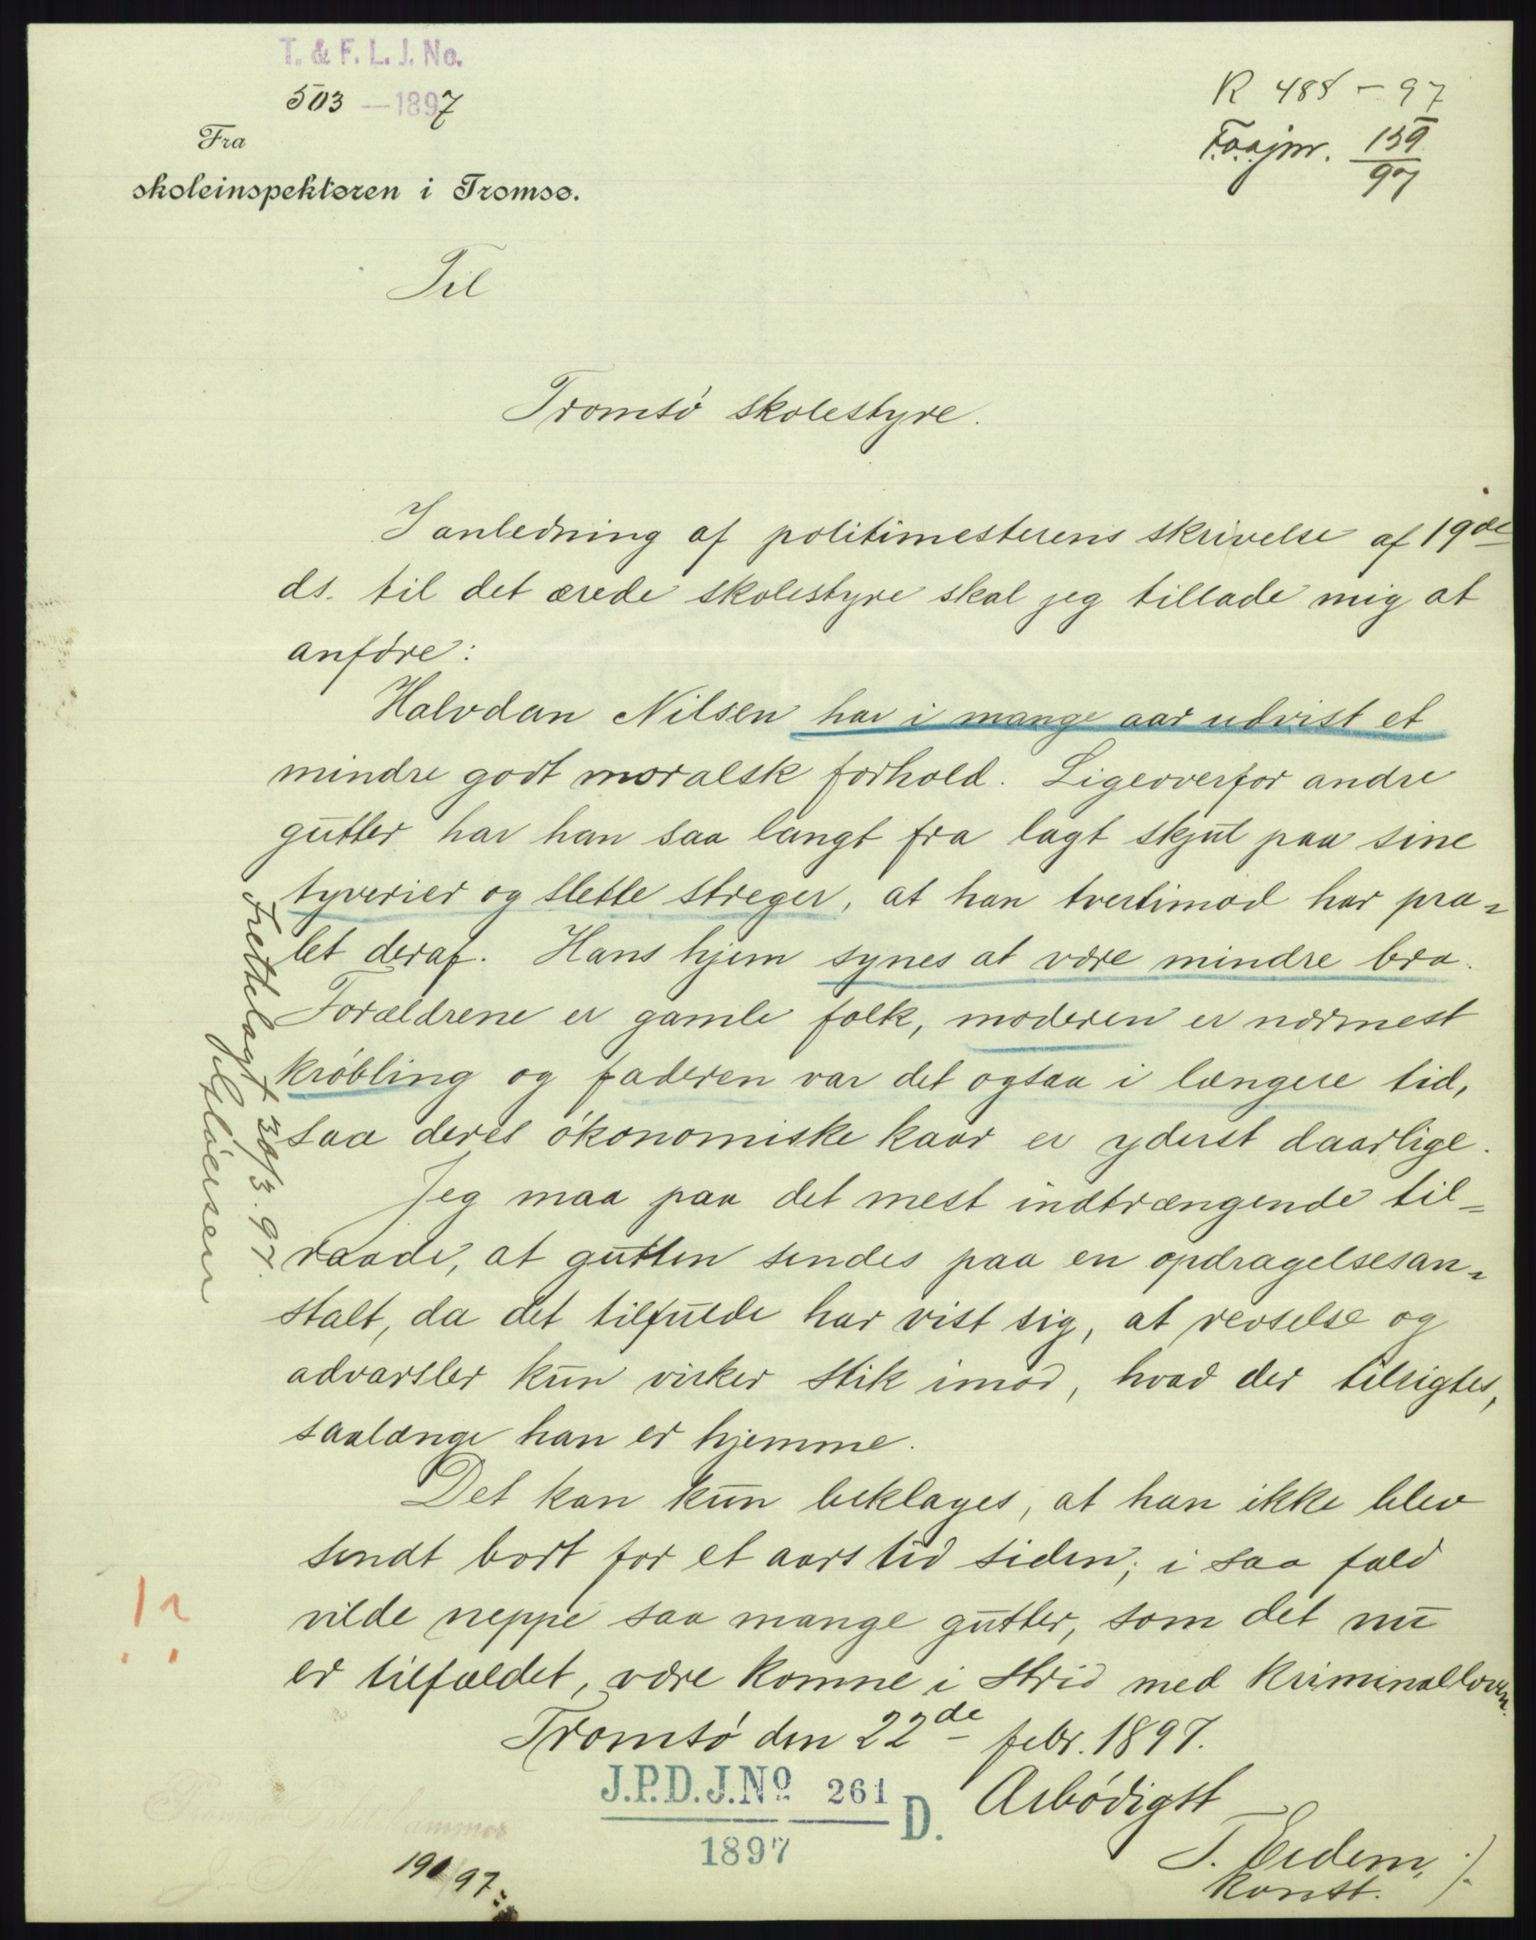 T. & F. L. J. No.
503 — 1897
R 488 - 97
Fra
159
97
skoleinspektøren i Tromsø.
Til
Tromsö skolestyre.
I anledning af politimesterens skrivelse af 19de
ds. til det ærede skolestyre skal jeg tillade mig at
anføre:
Halvdan Nilsen har i mange aar udvist et
mindre godt moralsk forhold. Ligeoverfor andre
gutter har han saa langt fra lagt skjul paa sine
tyverier og slette streger, at han tvertimod har pra-
let deraf. Hans hjem synes at være mindre bra.
Forældrene er gamle folk, moderen er nærmest
krøbling og faderen var det ogsaa i længere tid,
saa deres økonomiske kaar er yderst daarlige.
Jeg maa paa det mest indtrængende til-
raade, at gutten sendes paa en opdragelsesan-
stalt, da det tilfulde har vist sig, at revselse og
advarsler kun virker stik imod, hvad der tilsigtes,
saalænge han er hjemme.
Det kan kun beklages, at han ikke blev
sendt bort for et aars tid siden; i saa fald
vilde neppe saa mange gutter, som det nu
er tilfældet, være komne i strid med kriminalloven.
Tromsö den 22de febr. 1897.
Ærbödigst
konst.
J.P.D. J.No 261 D.
1897
190/97.
Fremlagt 30/3. 97.